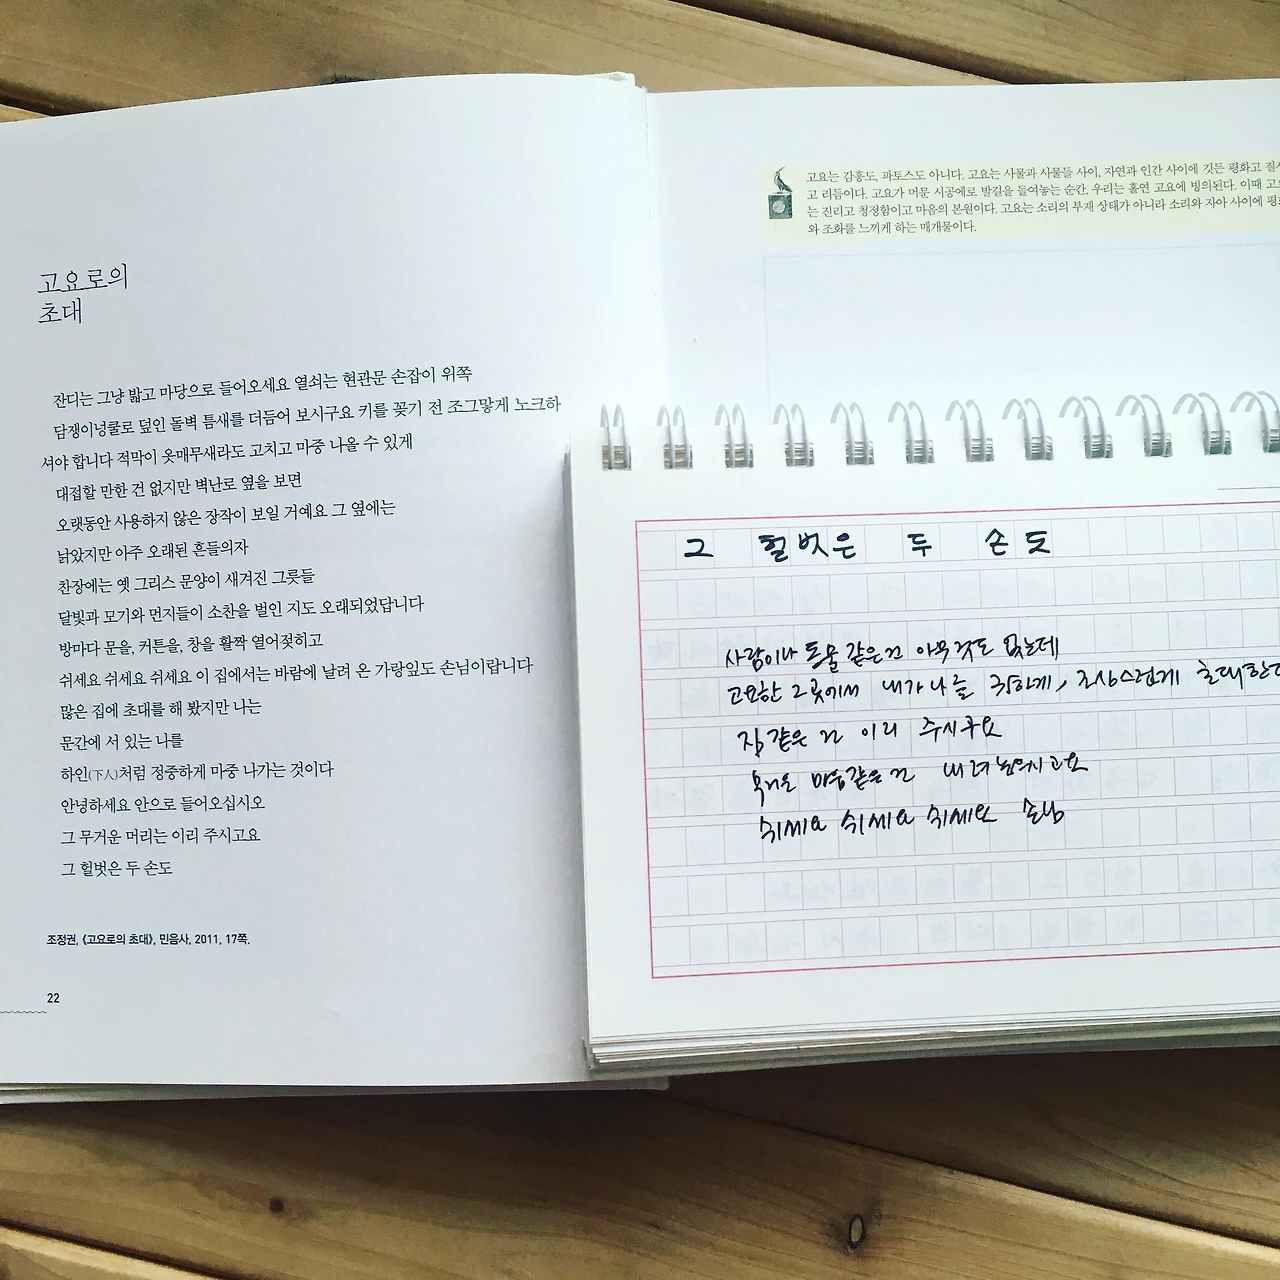 고요로의
초대
잔디는 그냥 밟고 마당으로 들어오세요 열쇠는 현관문 손잡이 위쪽
담쟁이넝쿨로 덮인 돌벽 틈새를 더듬어 보시구요 키를 꽂기 전 조그맣게 노크하
셔야 합니다 적막이 옷매무새라도 고치고 마중 나올 수 있게
대접할 만한 건 없지만 벽난로 옆을 보면
오랫동안 사용하지 않은 장작이 보일 거예요 그 옆에는
낡았지만 아주 오래된 흔들의자
찬장에는 옛 그리스 문양이 새겨진 그릇들
달빛과 모기와 먼지들이 소찬을 벌인 지도 오래되었답니다
방마다 문을, 커튼을, 창을 활짝 열어젖히고
쉬세요 쉬세요 쉬세요 이 집에서는 바람에 날려 온 가랑잎도 손님이랍니다
많은 집에 초대를 해 봤지만 나는
문간에 서 있는 나를
하인(下人)처럼 정중하게 마중 나가는 것이다
안녕하세요 안으로 들어오십시오
그 무거운 머리는 이리 주시고요
그 헐벗은 두 손도
조정권, 《고요로의 초대》, 민음사, 2011, 17쪽.
22
고요는 감흥도, 파토스도 아니다. 고요는 사물과 사물들 사이, 자연과 인간 사이에 깃든 평화고 질서
고 리듬이다. 고요가 머문 시공에로 발길을 들여놓는 순간, 우리는 홀연 고요에 빙의된다. 이때 고요
는 진리고 청정함이고 마음의 본원이다. 고요는 소리의 부재 상태가 아니라 소리와 자아 사이에 평화
와 조화를 느끼게 하는 매개물이다.
그 헐벗은 두 손도
사람이나 동물 같은 건 아무 것도 없는데
고요한 그곳에서 내가 나를 귀하게, 조심스럽게 초대한다
짐 같은 건 이리 주시구요
무거운 마음같은 건 내려놓으시고요
쉬세요 쉬세요 쉬세요 손님